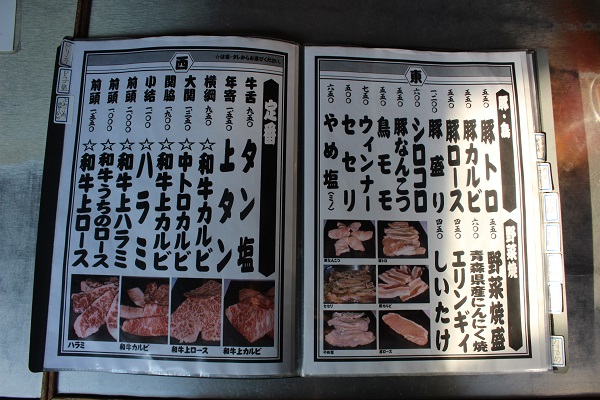 東
豚・鳥
五五〇 豚トロ
五五〇 豚カルビ
五五〇 豚ロース
一二〇〇 豚盛り
六〇〇 シロコロ
五五〇 豚なんこつ
五五〇 鳥モモ
七五〇 ウィンナー
五五〇 セセリ
六五〇 やめ塩(ミノ)
野菜焼
五五〇 野菜焼盛
六〇〇 青森県産にんにく焼
四五〇 エリンギィ
四五〇 しいたけ
豚なんこつ
豚トロ
セセリ
豚カルビ
やめ塩
豚ロース
西
☆は塩・タレからお選びください。
定番
牛舌 九五〇 タン塩
年寄 上タン
横綱 九五〇 ☆和牛カルビ
大関 一三五〇 ☆中トロカルビ
関脇 一九〇〇 ☆和牛上カルビ
小結 一〇〇〇 ☆ハラミ
前頭 ☆和牛上ハラミ
前頭 ☆和牛うちのロース
前頭 一五五〇 ☆和牛上ロース
ハラミ
和牛カルビ
和牛上ロース
和牛上カルビ